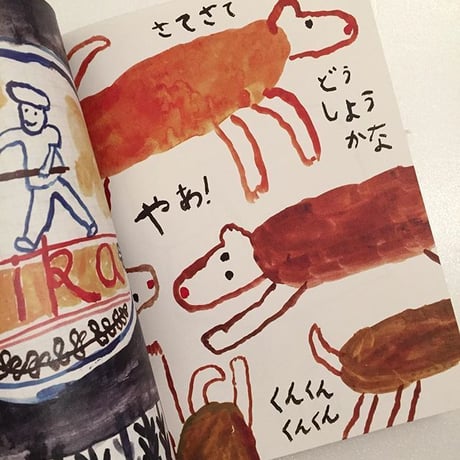 ika
さてさて
どう
しよう
かな
やあ!
くんくん
くんくん